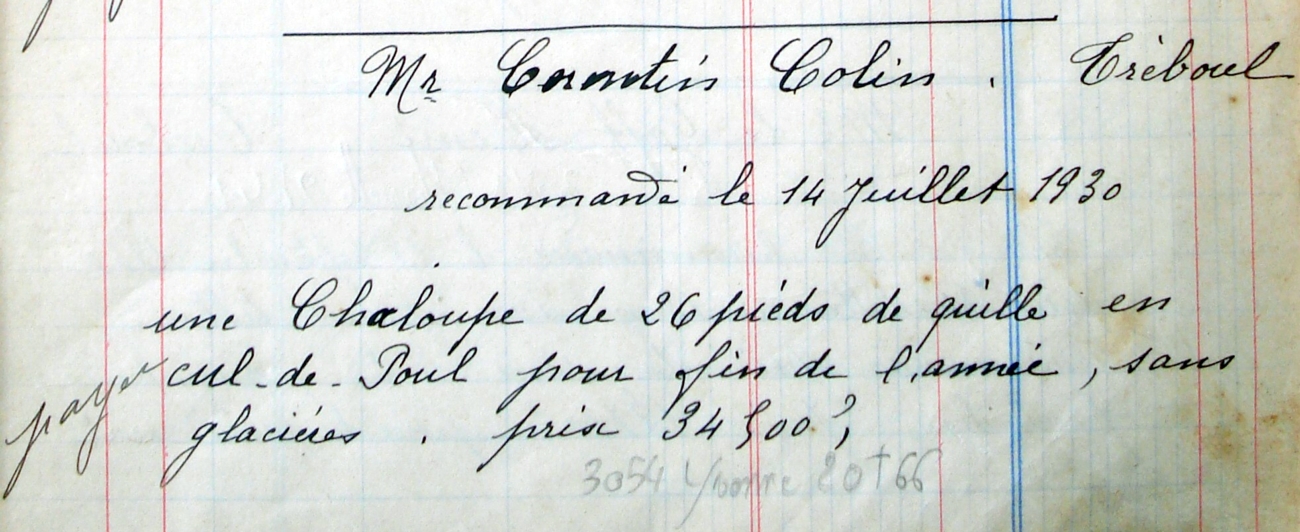 Mr Corentin Colin . Tréboul
recommandé le 14 Juillet 1930
une Chaloupe de 26 piéds de quille en
cul-de-Poul pour fin de l'année, sans
payer
glacières . prix 34500
3054 Yvonne 20T66